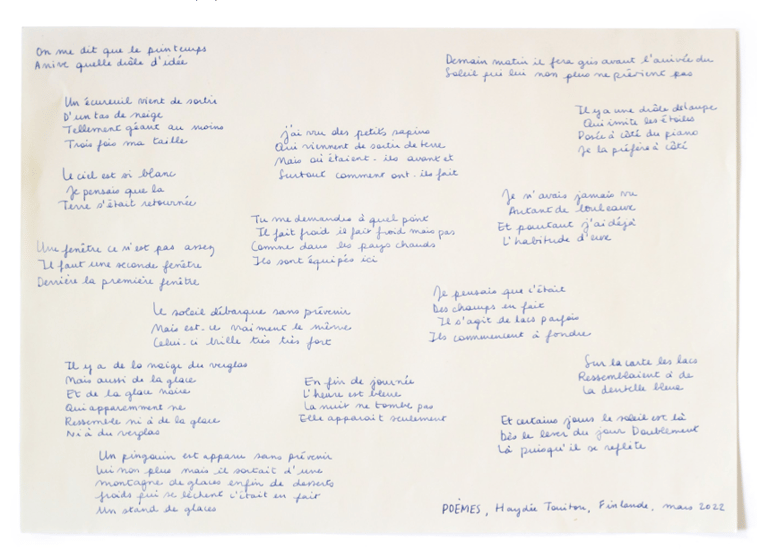 On me dit que le printemps
Arrive quelle drôle d'idée
Demain matin il fera gris avant l'arrivée du
Soleil qui lui non plus ne prévient pas
Un écureuil vient de sortir
D'un tas de neige
Tellement géant au moins
Trois fois ma taille
j'ai vu des petits sapins
Qui viennent de sortir de terre
Mais où étaient-ils avant et
Surtout comment ont-ils fait
Il y a une drôle de lampe
Qui imite les étoiles
Posée à côté du piano
Je la préfère à côté
Le ciel est si blanc
Je pensais que la
Terre s'était retournée
Je n'avais jamais vu
Autant de bouleaux
Et pourtant j'ai déjà
L'habitude d'eux
Tu me demandes à quel point
Il fait froid il fait froid mais pas
Comme dans les pays chauds
Ils sont équipés ici
Une fenêtre ce n'est pas assez
Il faut une seconde fenêtre
Derrière la première fenêtre
Je pensais que c'était
Des champs en fait
Il s'agit de lacs parfois
Ils commencent à fondre
Le soleil débarque sans prévenir
Mais est-ce vraiment le même
Celui-ci brille très très fort
Il y a de la neige du verglas
Mais aussi de la glace
Et de la glace noire
Qui apparemment ne
Ressemble ni à de la glace
Ni à du verglas
En fin de journée
L'heure est bleue
La nuit ne tombe pas
Elle apparaît seulement
Sur la carte les lacs
Ressemblaient à de
La dentelle bleue
Et certains jours le soleil est là
Dès le lever du jour Doublement
Là puisqu'il se reflète
Un pingouin est apparu sans prévenir
Lui non plus mais il sortait d'une
montagne de glaces enfin de desserts
froids qui se lèchent c'était en fait
Un stand de glaces
POÈMES, Haydée Touitou, Finlande, mars 2022